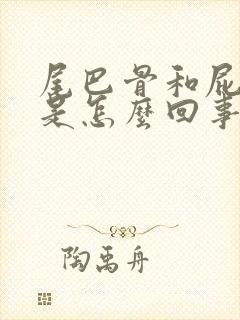 尾巴骨和屁
是怎麼回事
陶禹舟